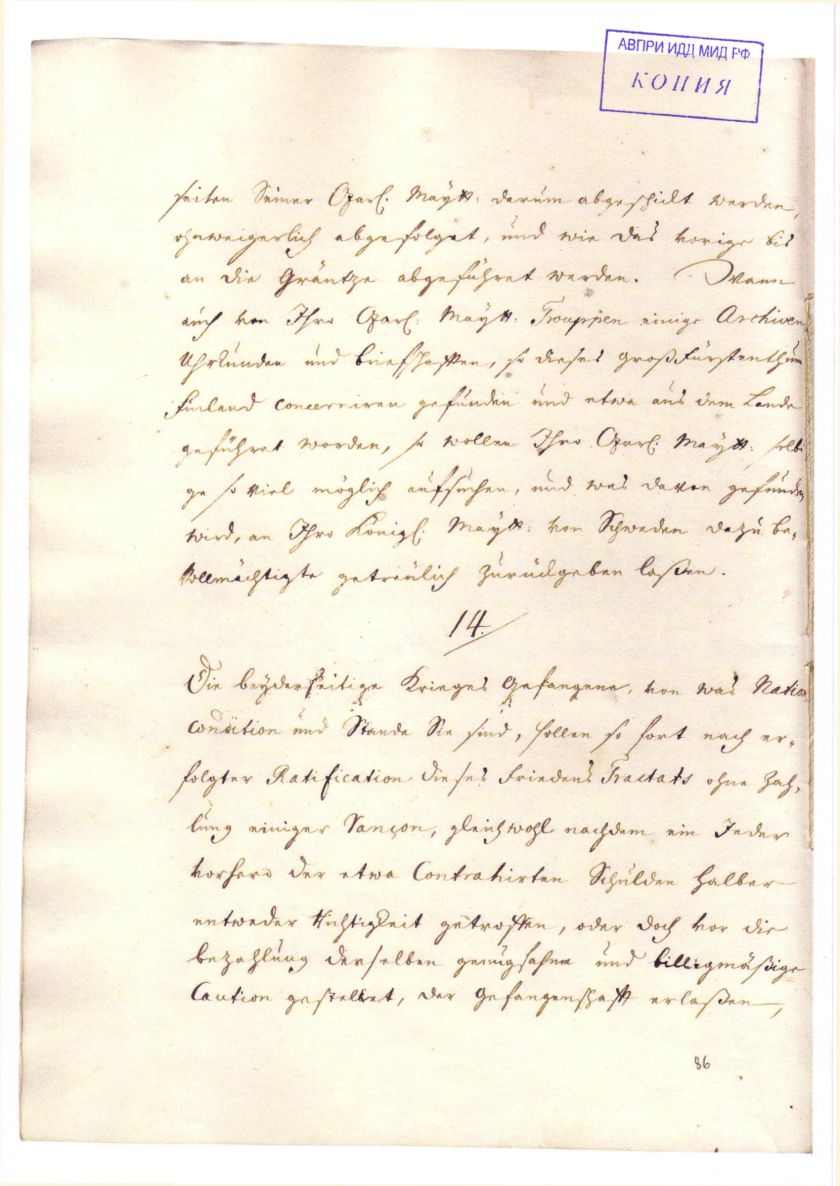 АВПРИ ИДД МИД РФ
КОПИЯ
seiten Seiner Czarl. Maytt: darum abgeschickt werden,
ohnweigerlich abgefolget, und wie das vorige bis
an die Gräntze abgeführet werden. Wann
auch von Ihro Czarl: Maytt: Trouppen einige Archiven
Uhrkunden und briefschafften, so dieses Großfürstenthum
Finland concerniren gefunden und etwa aus dem Lande
geführet worden, so wollen Ihro Czarl: Maytt: selbi
ge so viel möglich aufsuchen, und was davon gefunden
wird, an Ihro Königl: Maytt: von Schweden dazu be-
vollmächtigte getreulich zurückgeben laßen.
14.
Die beyderseitige Krieges Gefangene, von was Nation
condition und Stande Sie sind, sollen so fort nach er-
folgter Ratification dieses Friedens Tractats ohne Zah-
lung einiger Sançon, gleichwohl nachdem ein Jeder
vorhero der etwa Contrahirten Schulden halber
entweder Richtigkeit getroffen, oder doch vor die
bezahlung derselben genugsahme und billigmäßige
Caution gestellet, der Gefangenschafft erlaßen,
86